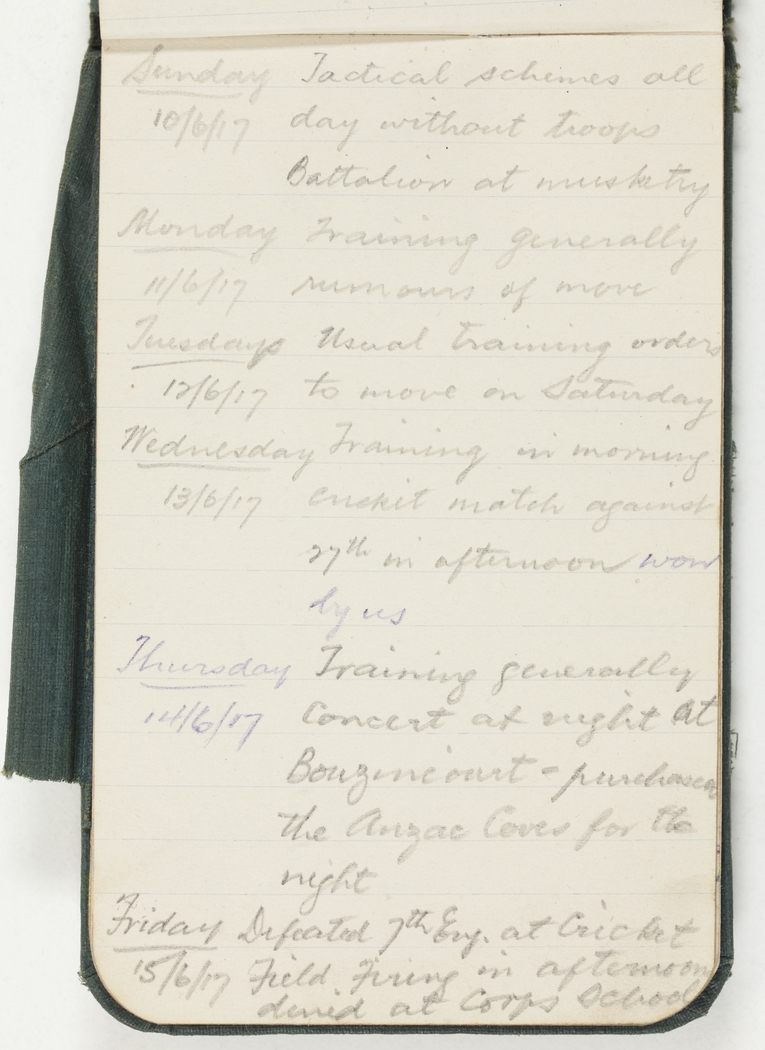 Sunday Tactical schemes all
10/6/17 day without troops
Battalion at musketry
Monday Training generally
11/6/17 rumours of move
Tuesday Usual training orders
12/6/17 to move on Saturday
Wednesday Training in morning
13/6/17 cricket match against
27th in afternoon won
by us
Thursday Training generally
14/6/17 Concert at night at
Bouzincourt - purchased
the Anzac Coves for the
night
Friday Defeated 7th Eng. at Cricket
15/6/17 Field Firing in afternoon
dined at Corps School